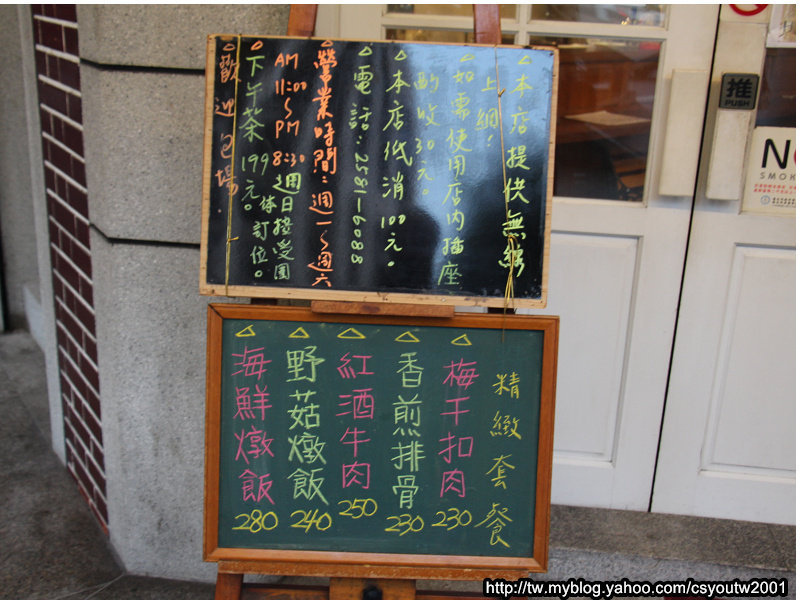 △本店提供無線
上網！
△如需使用店內插座
酌收30元。
△本店低消100元。
△電話：2581-6088
△營業時間：週一~週六
AM
11:00
~
PM
8:30
週日接受團
体訂位。
△下午茶199元。
△歡迎包場.
精緻套餐
△梅干扣肉
230
△香煎排骨
230
△紅酒牛肉
250
△野菇燉飯
240
△海鮮燉飯
280
推
PUSH
http://tw.myblog.yahoo.com/csyoutw2001